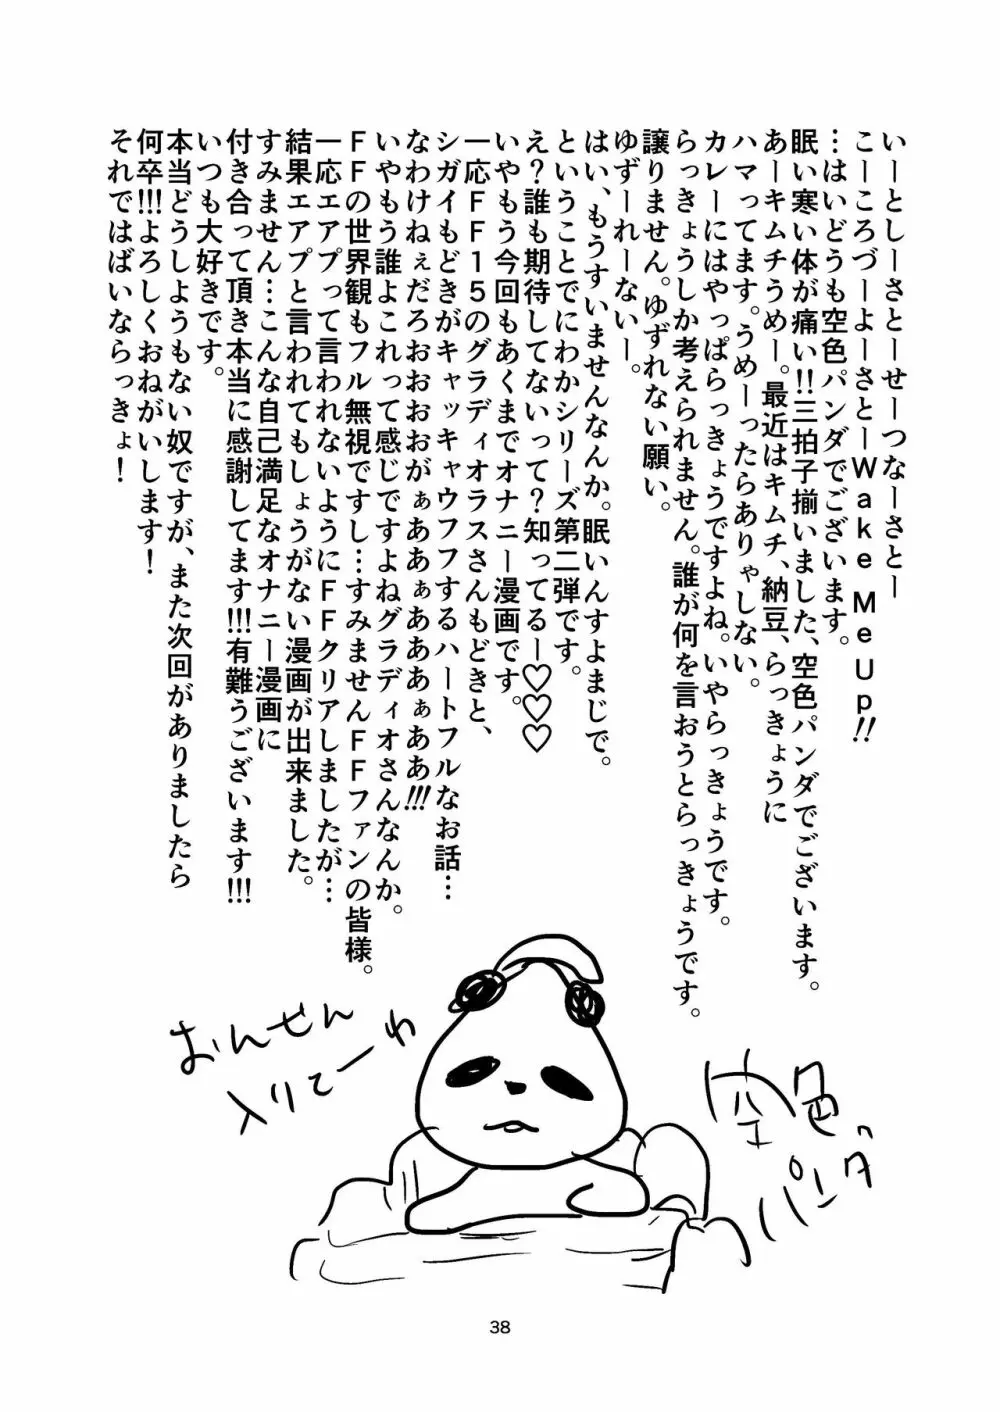 いーとしーさとーせーつなーさとー
こーころづーよーさとーWake Me Up!!
…はいどうも空色パンダでございます。
眠い寒い体が痛い!!三拍子揃いました、空色パンダでございます。
あーキムチうめー。最近はキムチ、納豆、らっきょうに
ハマってます。うめーったらありゃしない。
カレーにはやっぱらっきょうですよね。いやらっきょうです。
らっきょうしか考えられません。誰が何を言おうとらっきょうです。
譲りません。ゆずれない願い。
ゆずーれーないー。
はい、もうすいませんなんか。眠いんすよまじで。
ということでにわかシリーズ第二弾です。
え?誰も期待してないって?知ってるー♡♡♡
いやもう今回もあくまでオナニー漫画です。
一応FF15のグラディオラスさんもどきと、
シガイもどきがキャッキャウフフするハートフルなお話…
なわけねぇだろおおおおがぁああぁああああぁああ!!!
いやもう誰よこれって感じですよねグラディオさんなんか。
FFの世界観もフル無視ですし…すみませんFFファンの皆様。
一応エアプって言われないようにFFクリアしましたが…
結果エアプと言われてもしょうがない漫画が出来ました。
すみません…こんな自己満足なオナニー漫画に
付き合って頂き本当に感謝してます!!!有難うございます!!!
いつも大好きです。
本当どうしようもない奴ですが、また次回がありましたら
何卒!!!よろしくおねがいします!
それではばいならっきょ!
おんせん
入りてーわ
空色
パンダ
38